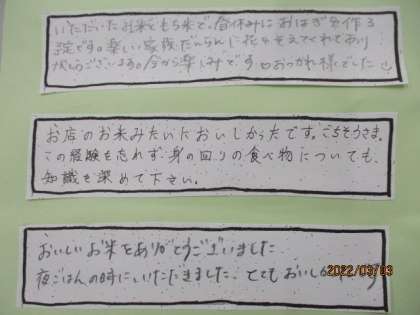 いただいたお米ともち米で、春休みにおはぎを作る
予定です。楽しい家族だんらんに花をそえてくれてあり
がとうございます。今から楽しみです おつかれ様でした
お店のお米みたいにおいしかったです。ごちそうさま。
この経験を忘れず、身の回りの食べ物についても、
知識を深めて下さい。
おいしいお米をありがとうございました
夜ごはんの時に、いただきました。とてもおいし
2022/03/03